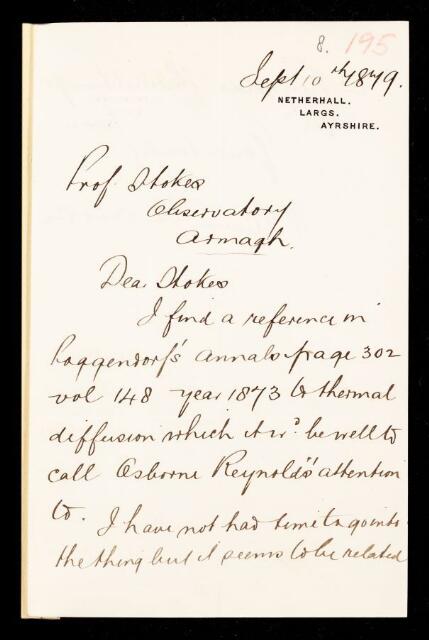 8. 195
Sept 10th 1879.
NETHERHALL.
LARGS.
AYRSHIRE.
Prof. Stokes
Observatory
Armagh.
Dear Stokes
I find a reference in
Poggendorf's Annals page 302
vol 148 year 1873 to thermal
diffusion which it wd. be well to
call Osborne Reynolds's attention
to. I have not had time to go into
the thing but it seems to be related